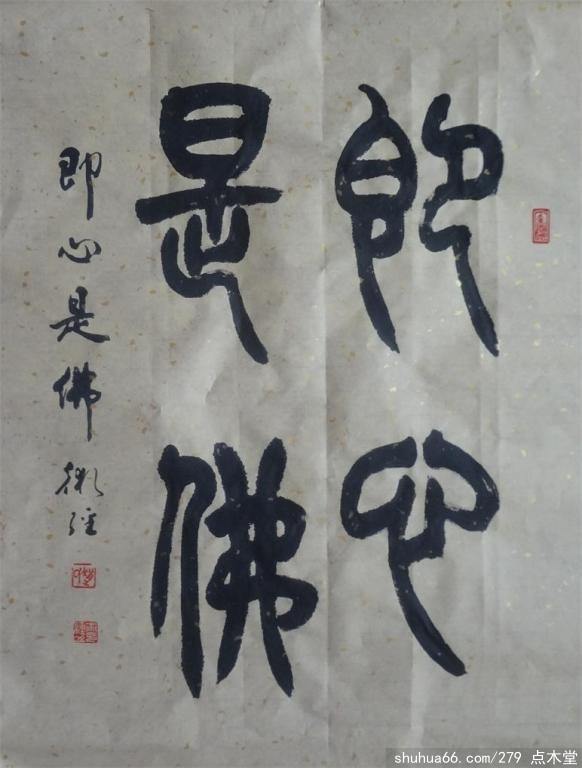 即心
是佛
即心是佛
shuhua66.com/279 点木堂